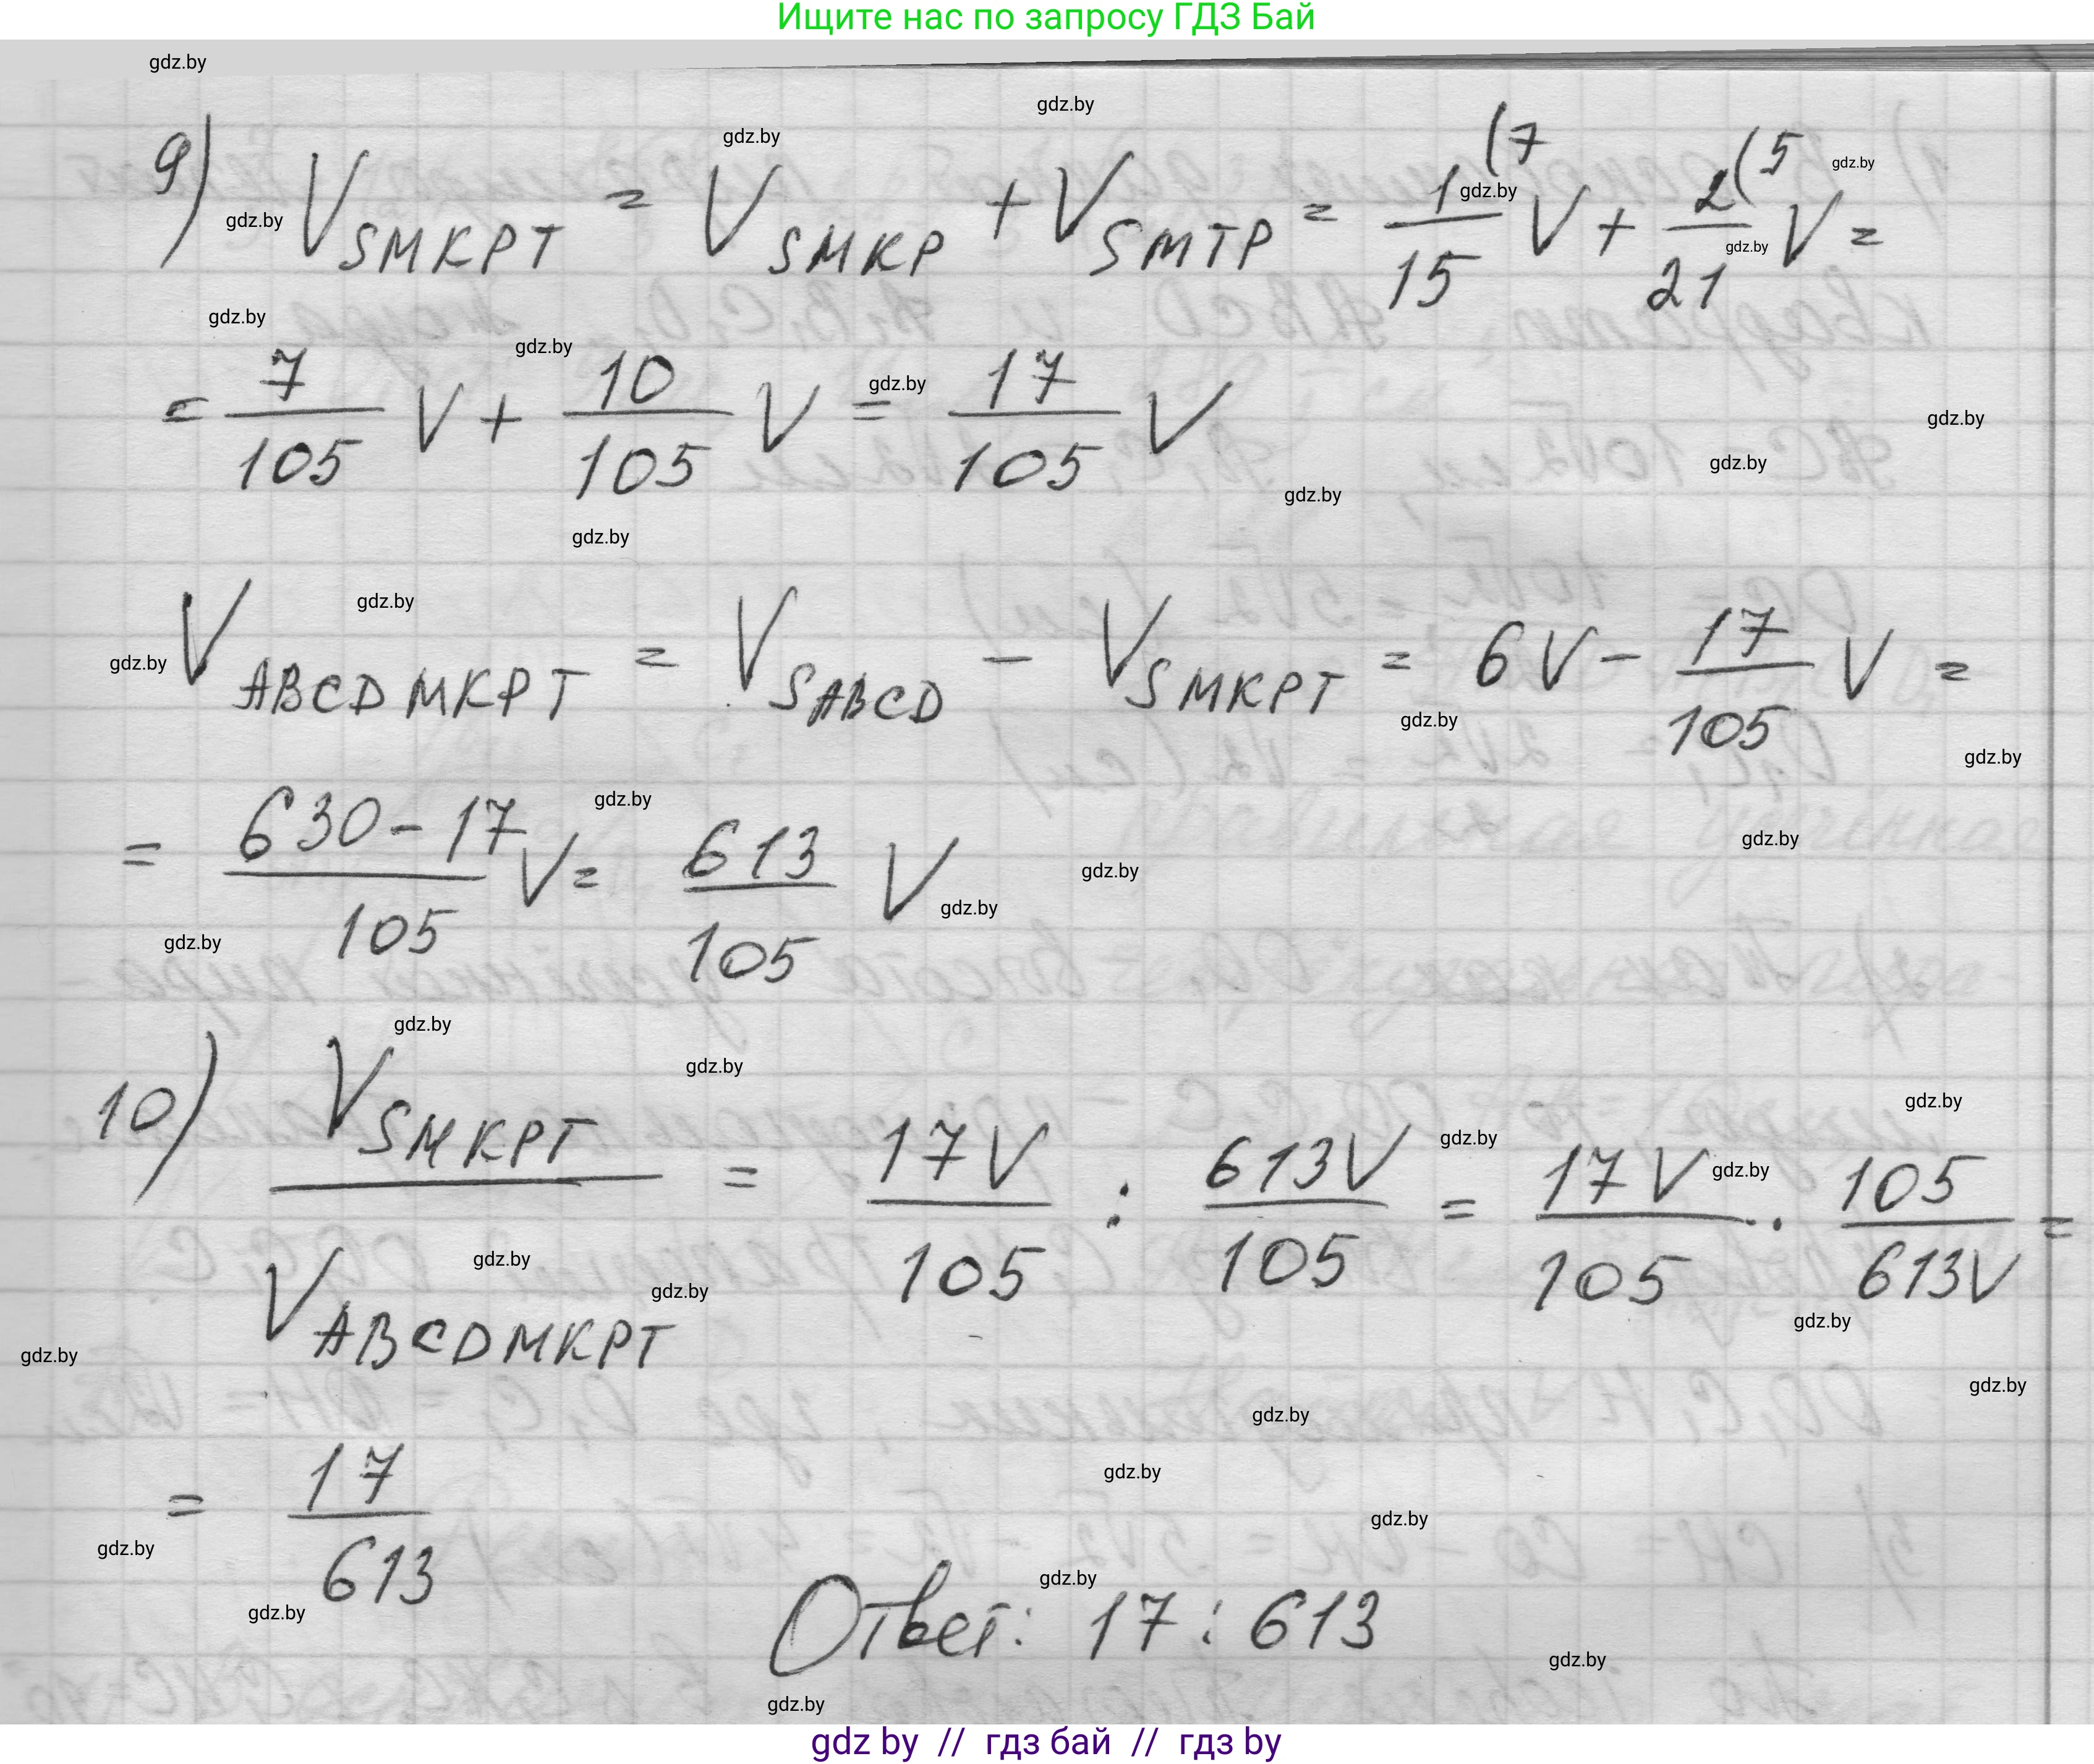 Ищите нас по запросу ГДЗ Бай
9) V_SMKPT = V_SMKP + V_SMTP = 1(7/15 V + 2(5/21 V =
= 7/105 V + 10/105 V = 17/105 V
V_ABCDMKPT = V_SABCD - V_SMKPT = 6V - 17/105 V =
= 630-17/105 V = 613/105 V
10) V_SMKPT/V_ABCDMKPT = 17V/105 : 613V/105 = 17V/105 · 105/613V =
= 17/613
Ответ: 17 : 613
gdz by // гдз бай // гдз by
gdz.by